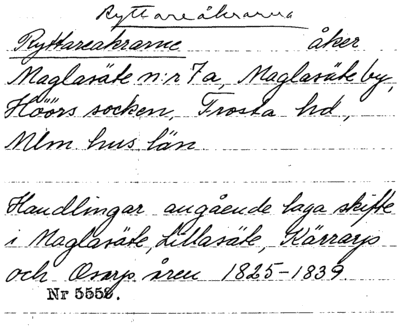 Ryttareåkrarna
Ryttareakrarne åker
Maglasäte n:r 7a, Maglasäte by,
Höörs socken, Frosta hd,
Mlm hus län
Handlingar angående laga skifte
i Maglasäte, Lillasäte, Kärrarp
och Osarp åren 1825-1839.
Nr 5558.